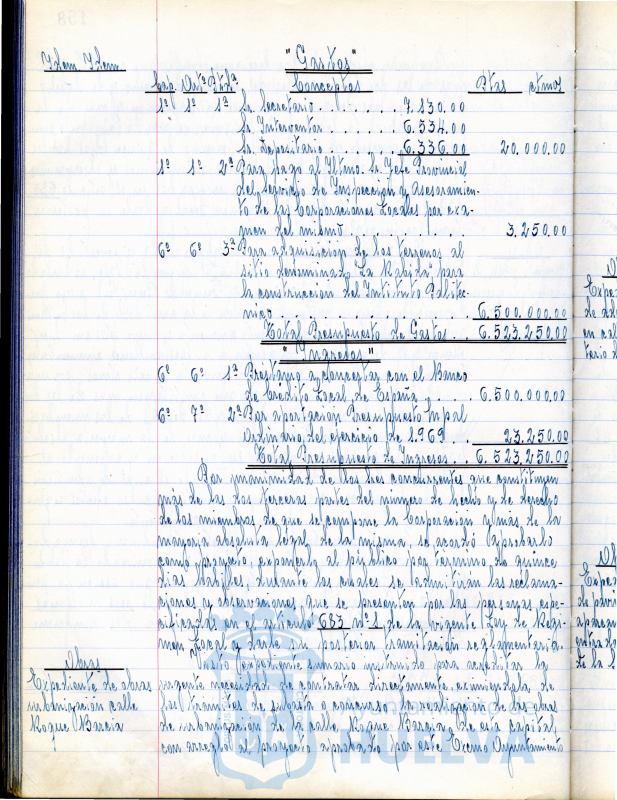 158
Idem Idem
"Gastos"
Cap. Artº Ptdª Conceptos Ptas ctmos
1º 1º 1ª Sr. Secretario . . . . . . . . 7.130.00
Sr. Interventor . . . . . . . 6.534.00
Sr. Depositario . . . . . . . 6.336.00 20.000.00
1º 1º 2ª Para pago al Iltmo. Sr. Jefe Provincial
del Servicio de Inspección y Asesoramien-
to de las Corporaciones Locales por exa-
men del mismo . . . . . . . . . . 3.250.00
6º 6º 3ª Para adquisición de los terrenos al
sitio denominado "La Rabida" para
la construcción del Instituto Politec-
nico . . . . . . . . . . . . . . 6.500.000.00
Total Presupuesto de Gastos . . 6.523.250.00
"Ingresos"
6º 6º 1ª Préstamo a concertar con el Banco
de Crédito Local de España . . . . 6.500.000.00
6º 7º 2ª Por aportación Presupuesto mpal
Ordinario del ejercicio de 1.969 . . . 23.250.00
Total Presupuesto de Ingresos . . 6.523.250.00
Por unanimidad de los tres concurrentes que constituyen
más de las dos terceras partes del número de hecho y de derecho
de los miembros de que se compone la Corporación y más de la
mayoria absoluta legal de la misma, se acordó aprobarlo
como proyecto, exponerlo al público por término de quince
dias habiles, durante los cuales se admitirán las reclama-
ciones y observaciones que se presenten por las personas espe-
cificadas en el artículo 683 nº 1 de la vigente Ley de Regi-
men Local y darle su posterior tramitación reglamentaria.
Obras
Expediente de obras
urbanización calle
Roque Barcia
Visto expediente sumario instruido para acreditar la
urgente necesidad de contratar directamente, eximiendola de
los tramites de subasta o concurso, la realización de las obras
de urbanización de la calle Roque Barcia de esta capital,
con arreglo al proyecto aprobado por este Excmo Ayuntamiento
HUELVA